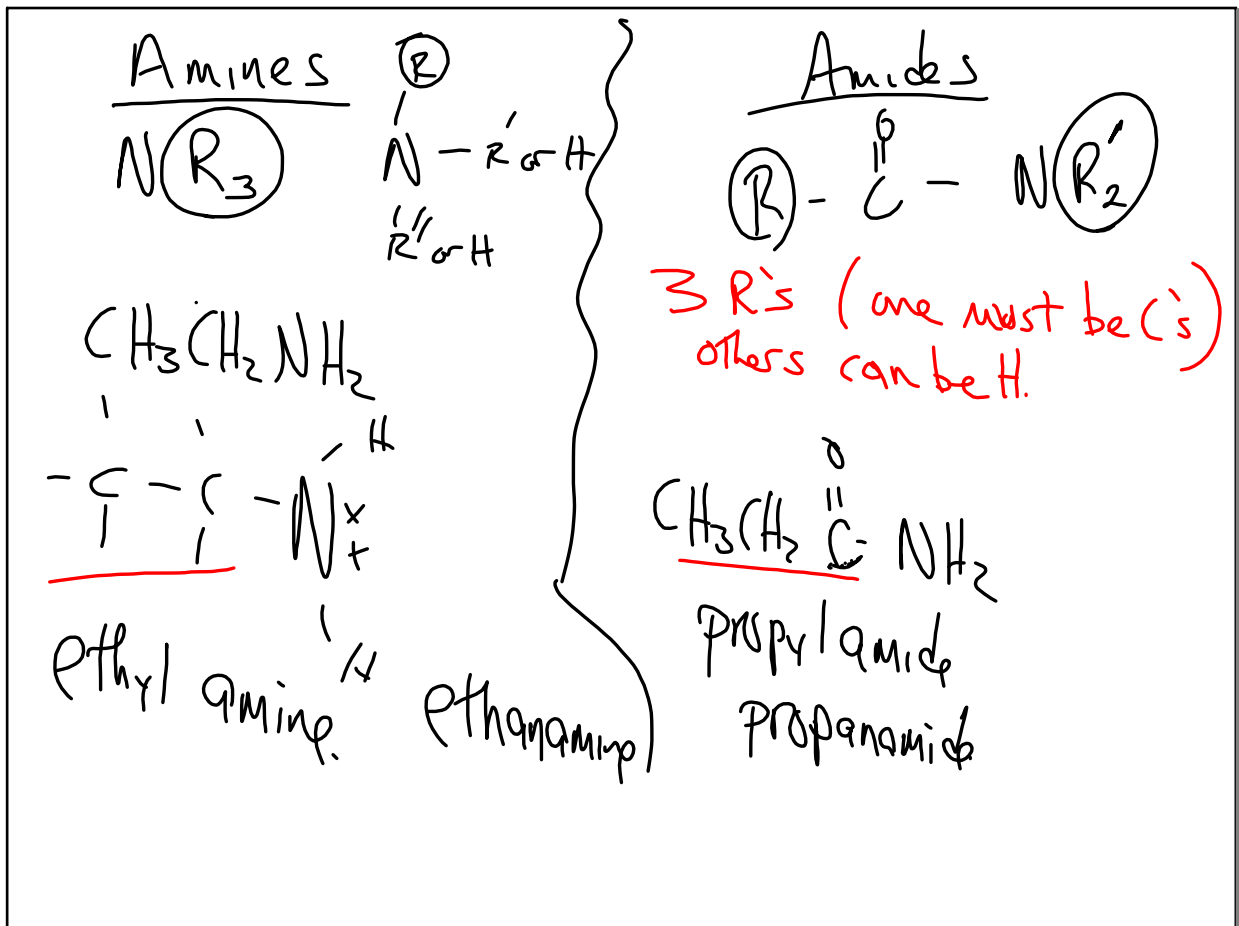 Amines
R
NR₃
N – R' or H
R'' or H
CH₃CH₂NH₂
H
– C – C – N
H
ethyl amine.
ethanamine
Amides
O
R - C – NR'₂
3 R's (one must be C's)
others can be H.
O
CH₃CH₂ C - NH₂
propyl amide
propanamide